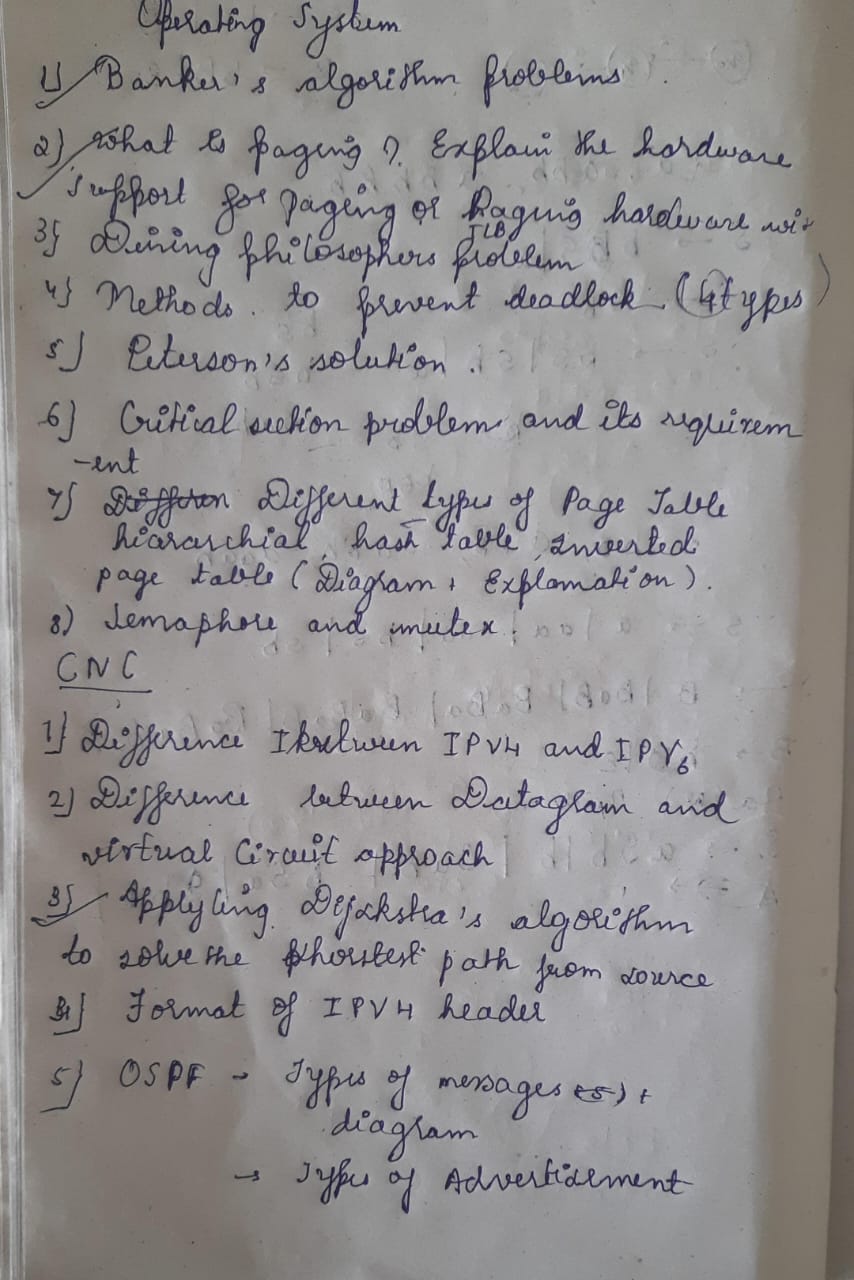 Operating System
1) Banker's algorithm problems.
2) What is paging ? Explain the hardware
support for paging or Paging hardware wit
TLB
3) Dining philosophers problem
4) Methods. to prevent deadlock (4types)
5) Peterson's solution.
6) Critical section problem and its requirem
-ent
7) Differen Different types of Page Table
hiararchial, hash table, inverted
page table (Diagram + Explamation).
8) Semaphore and mutex.
CNC
1) Difference between IPV4 and IPV6
2) Difference between Datagram and
virtual Circuit approach
3) Applyling Dijskstra's algorithm
to solve the shorstest path from source
4) Format of IPV4 header
5) OSPF - Types of messages (5) +
diagram
→ Types of Advertisement